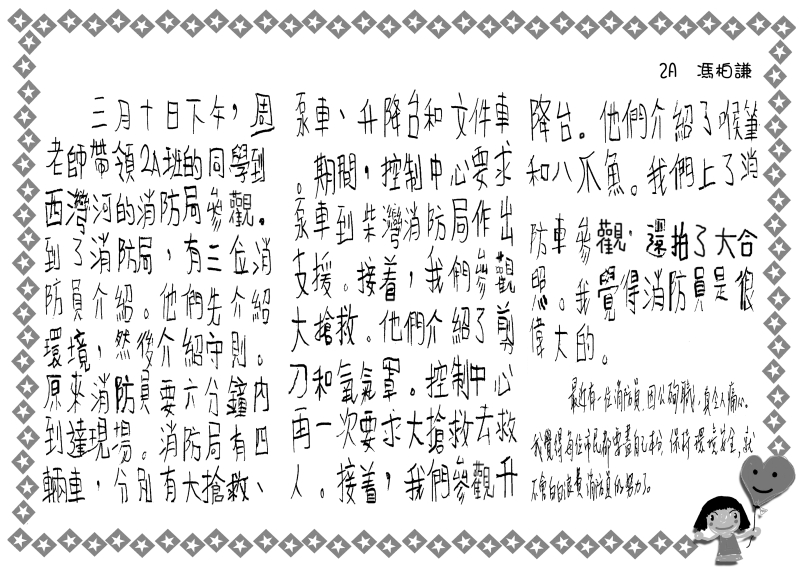 2A 馮柏謙
三月十日下午，周
老師帶領2A班的同學到
西灣河的消防局參觀。
到了消防局，有三位消
防員介紹。他們先介紹
環境，然後介紹守則。
原來消防員要六分鐘內
到達現場。消防局有四
輛車，分別有大搶救、
泵車、升降台和文件車
。期間，控制中心要求
泵車到柴灣消防局作出
支援。接着，我們參觀
大搶救。他們介紹了剪
刀和氧氣罩。控制中心
再一次要求大搶救去救
人。接着，我們參觀升
降台。他們介紹了喉筆
和八爪魚。我們上了消
防車參觀，還拍了大合
照。我覺得消防員是很
偉大的。
最近有一位消防員因公殉職，真令人痛心。
我覺得每位市民都要盡自己本分，保持環境安全，就
不會白白浪費消防員的努力了。